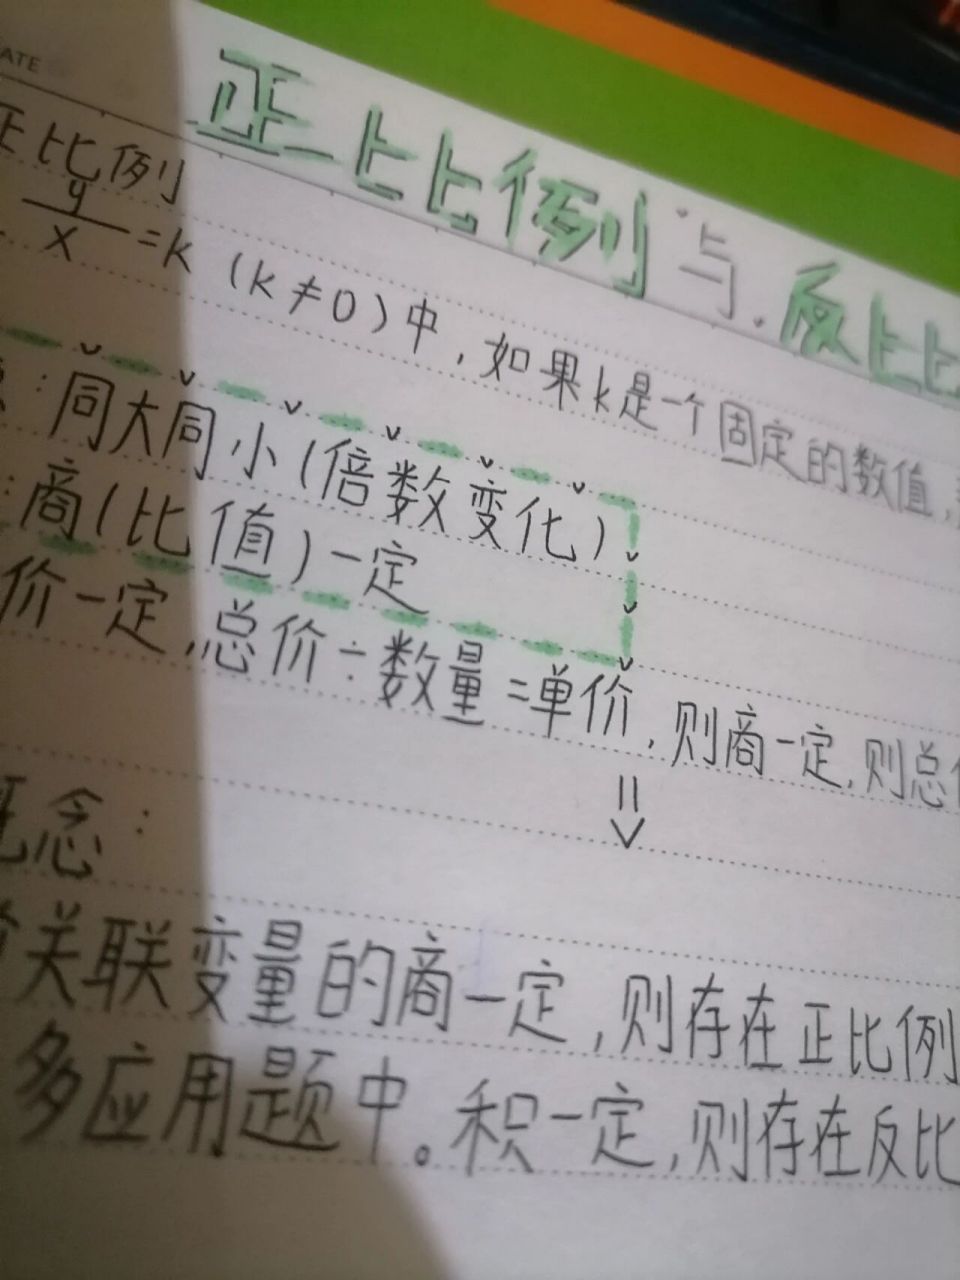 ATE
正比例与.反比
正比例
y/x=k (k≠0)中,如果k是一个固定的数值,
:同大同小(倍数变化)
:商(比值)一定
价一定,总价÷数量=单价,则商一定,则总
概念:
关联变量的商一定,则存在正比例
多应用题中。积一定,则存在反比